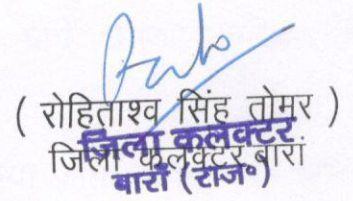 ( रोहिताश्व सिंह तोमर )
जिला कलक्टर
जिला कलक्टर बारां
बारॉ (राज॰)